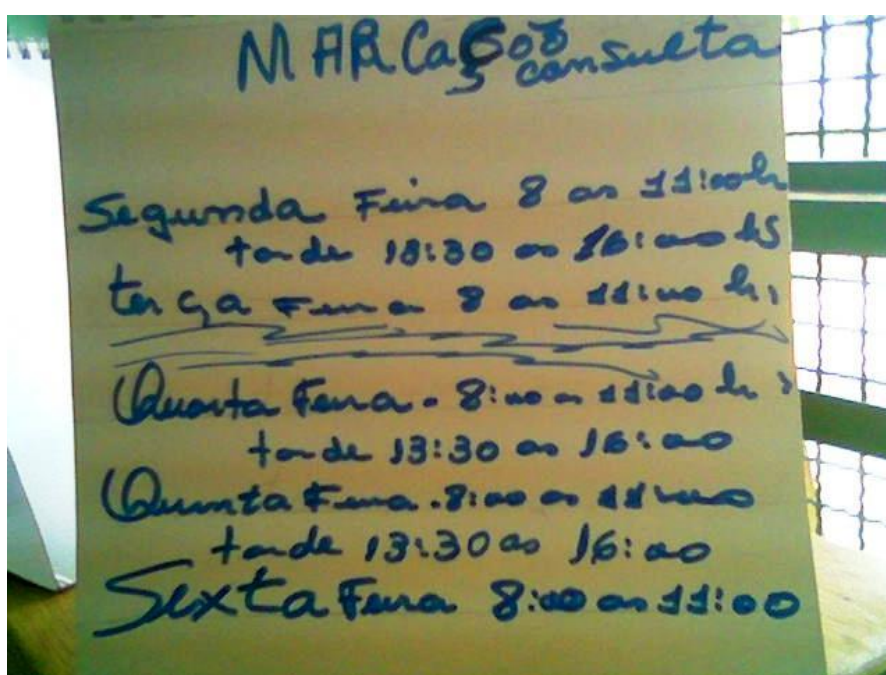 MARCação consulta
Segunda Feira 8 as 11:00h
tarde 13:30 as 16:00 hs
terça Feira 8 as 11:00 hs
Quarta Feira. 8:00 as 11:00 hs
tarde 13:30 as 16:00
Quinta Feira. 8:00 as 11:00
tarde 13:30 as 16:00
Sexta Feira 8:00 as 11:00